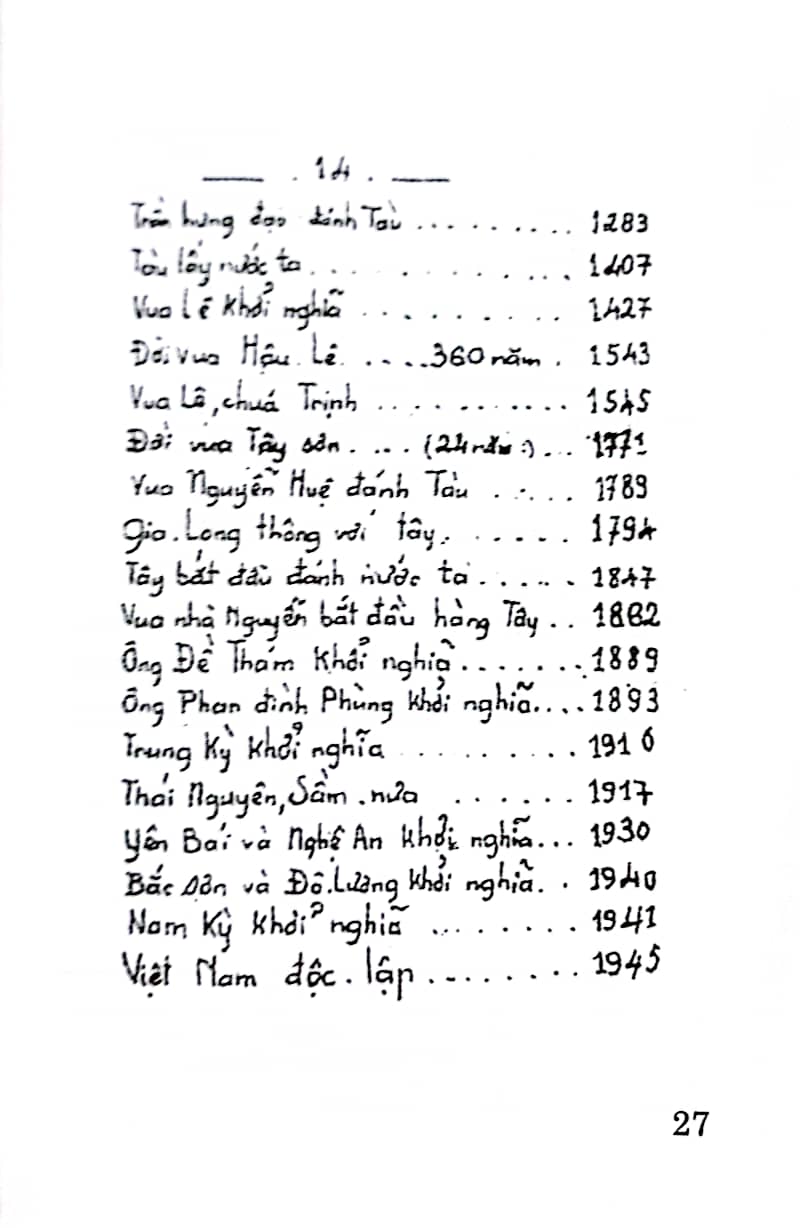 ____ . 14 . ____
Trần hưng đạo đánh Tàu ......... 1283
Tàu lấy nước ta ......... 1407
Vua Lê khởi nghĩa ......... 1427
Đời vua Hậu Lê .....360 năm . 1543
Vua Lê, chúa Trịnh .......... 1545
Đời vua Tây sơn .... (24 năm :)... 1771
Vua Nguyễn Huệ đánh Tàu ..... 1789
Gia.Long thông với tây ...... 1794
Tây bắt đầu đánh nước ta ...... 1847
Vua nhà Nguyễn bắt đầu hàng Tây .. 1862
Ông Đề Thám khởi nghĩa ........ 1889
Ông Phan đình Phùng khởi nghĩa.... 1893
Trung Kỳ khởi nghĩa ......... 1916
Thái Nguyên, Sầm .nưa ...... 1917
Yên Bái và Nghệ An khởi nghĩa... 1930
Bắc sơn và Đô.Lương khởi nghĩa. . 1940
Nam Kỳ khởi nghĩa ......... 1941
Việt Nam độc.lập ......... 1945
27